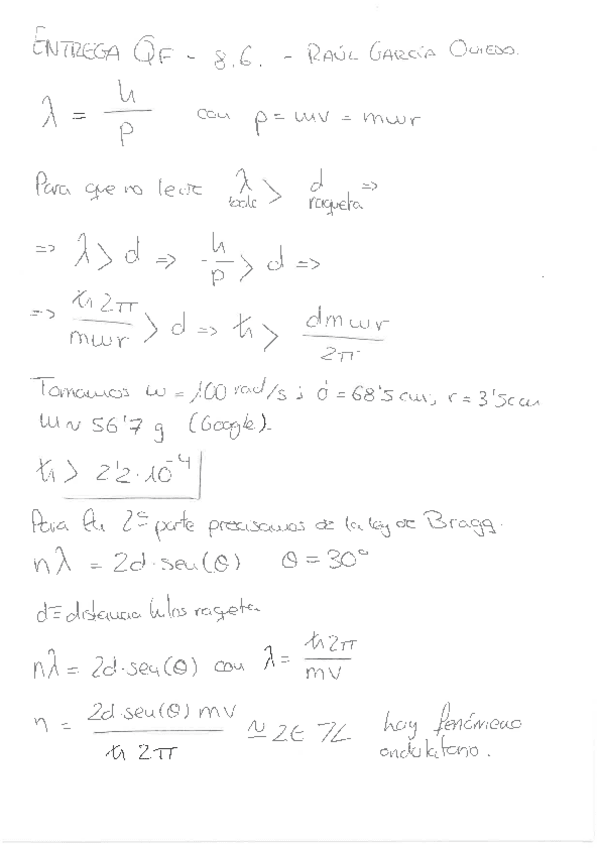 ENTREGA QF - 8.6. - RAÚL GARCÍA OVIEDO.
λ = h/p con p = mv = mwr
Para que no λ > d =>
raqueta
=> λ > d => h/p > d =>
=> ħ2π/mwr > d => ħ > dmwr/2π
Tomamos w = 100 rad/s ; d = 68'5 cm, r = 3'5cm
m ~ 56'7 g (Google).
ħ > 2'2·10⁻⁴
Para la 2ª parte precisamos de la ley de Bragg.
nλ = 2d·sen(θ) θ = 30°
d ≡ distancia hilos raqueta
nλ = 2d·sen(θ) con λ = ħ2π/mv
n = 2d·sen(θ) mv/ħ 2π ≃ 2 ∈ Z hay fenómeno
ondulatorio.